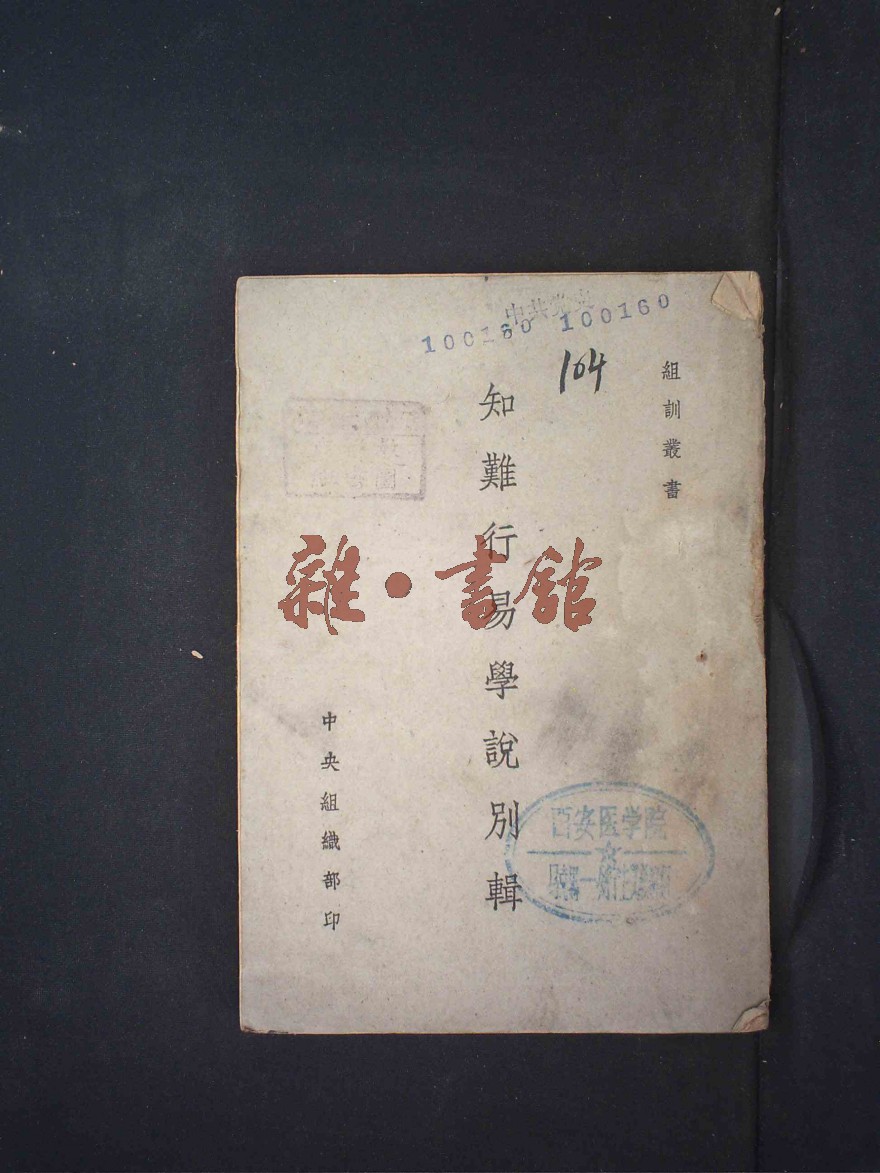 中共党史
100160 100160
104
組訓叢書
知難行易學說別輯
中央組織部印
雜·書館
西安医学院